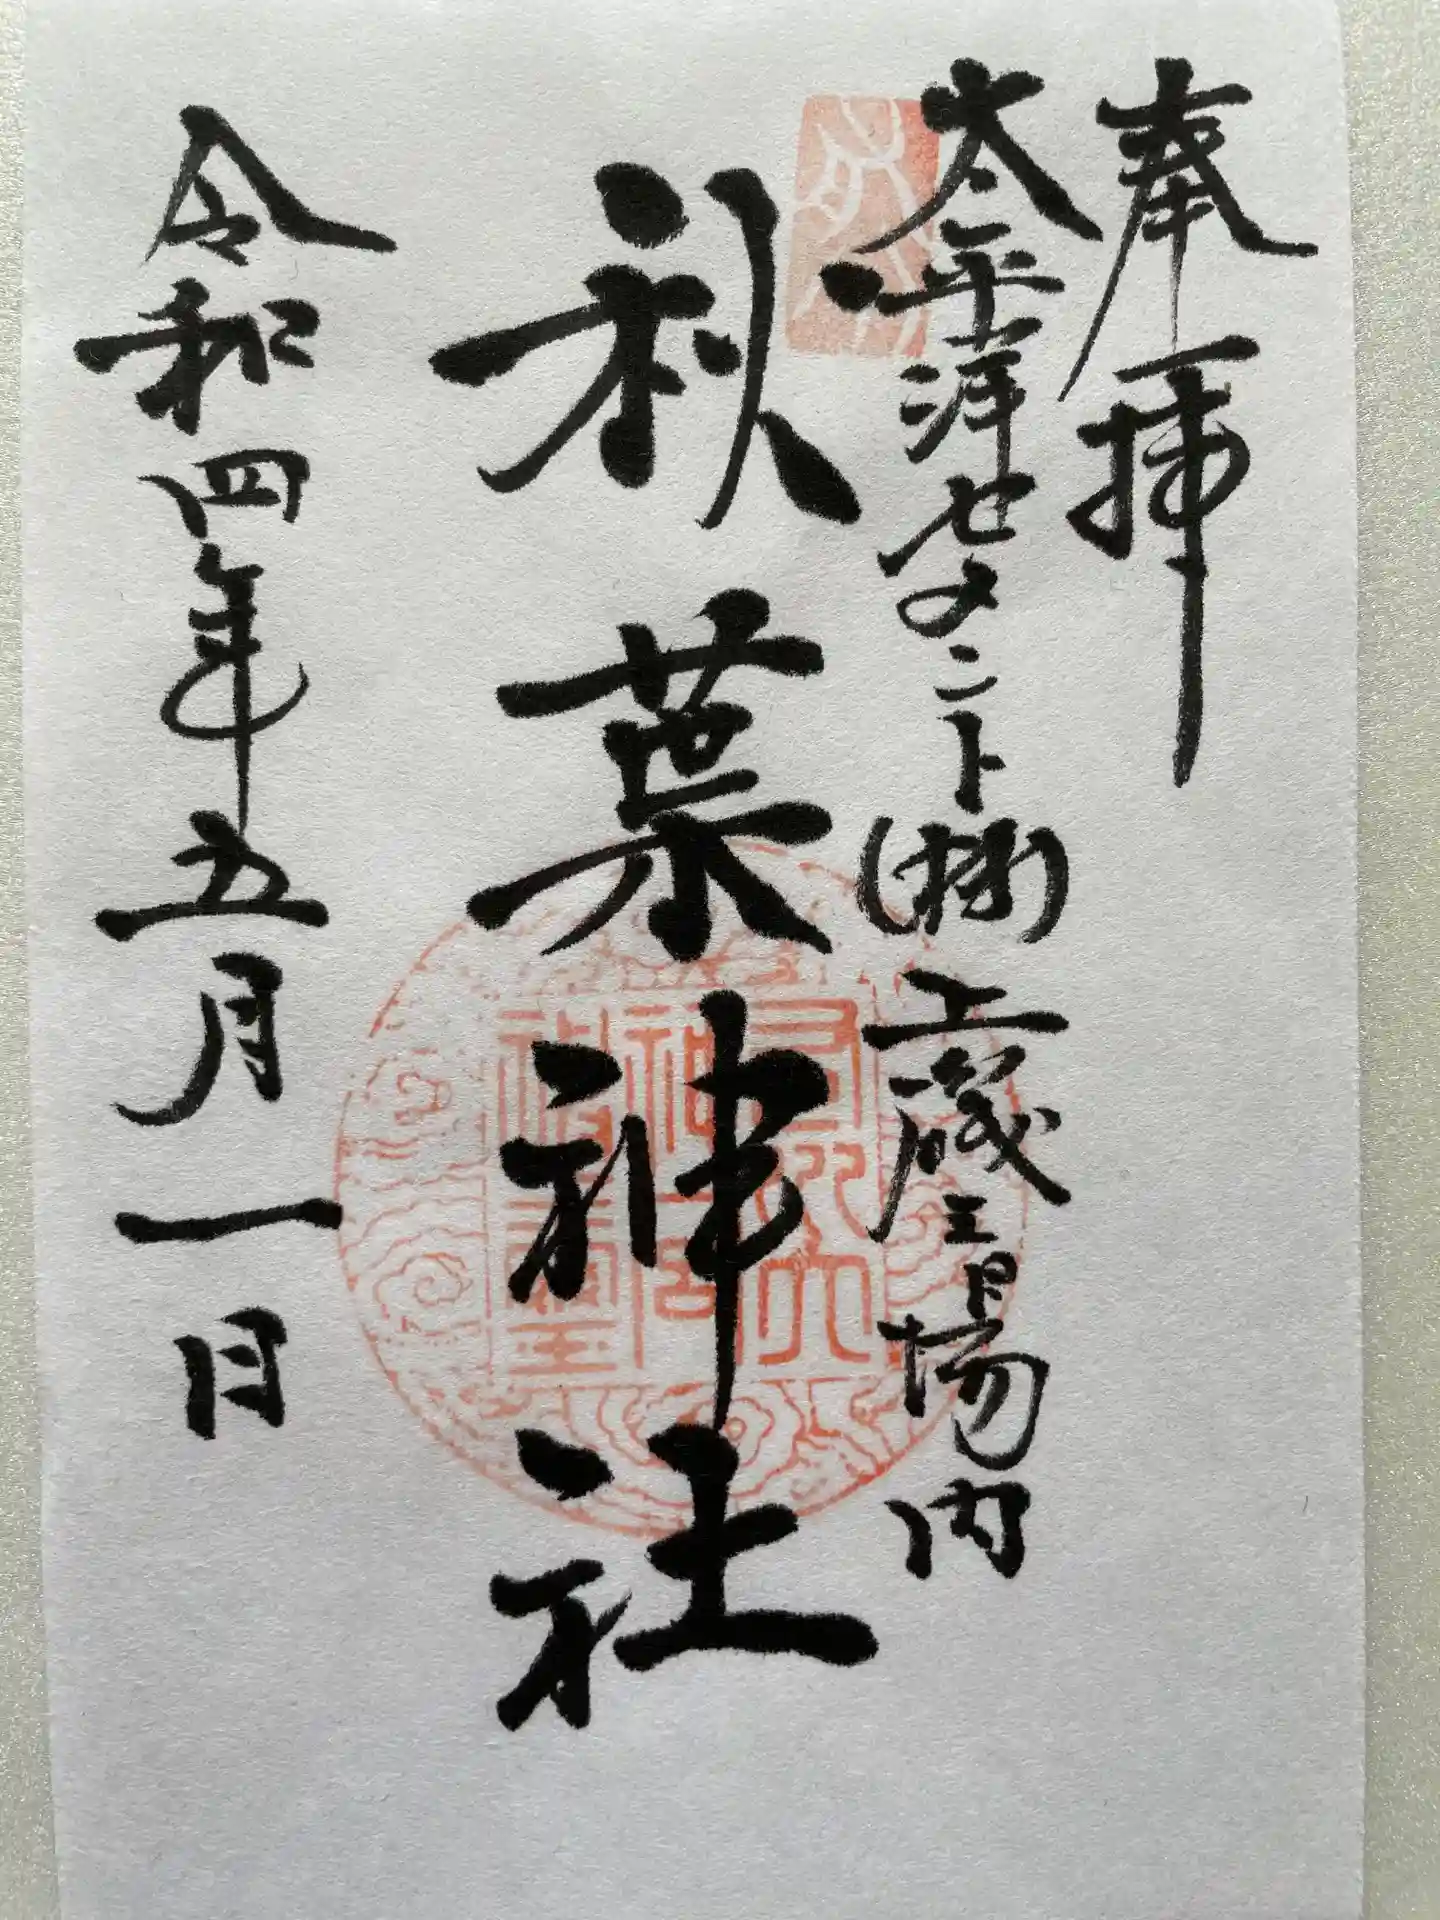 奉拝
太平洋セメント(株)上磯工場内
秋葉神社
令和四年五月一日